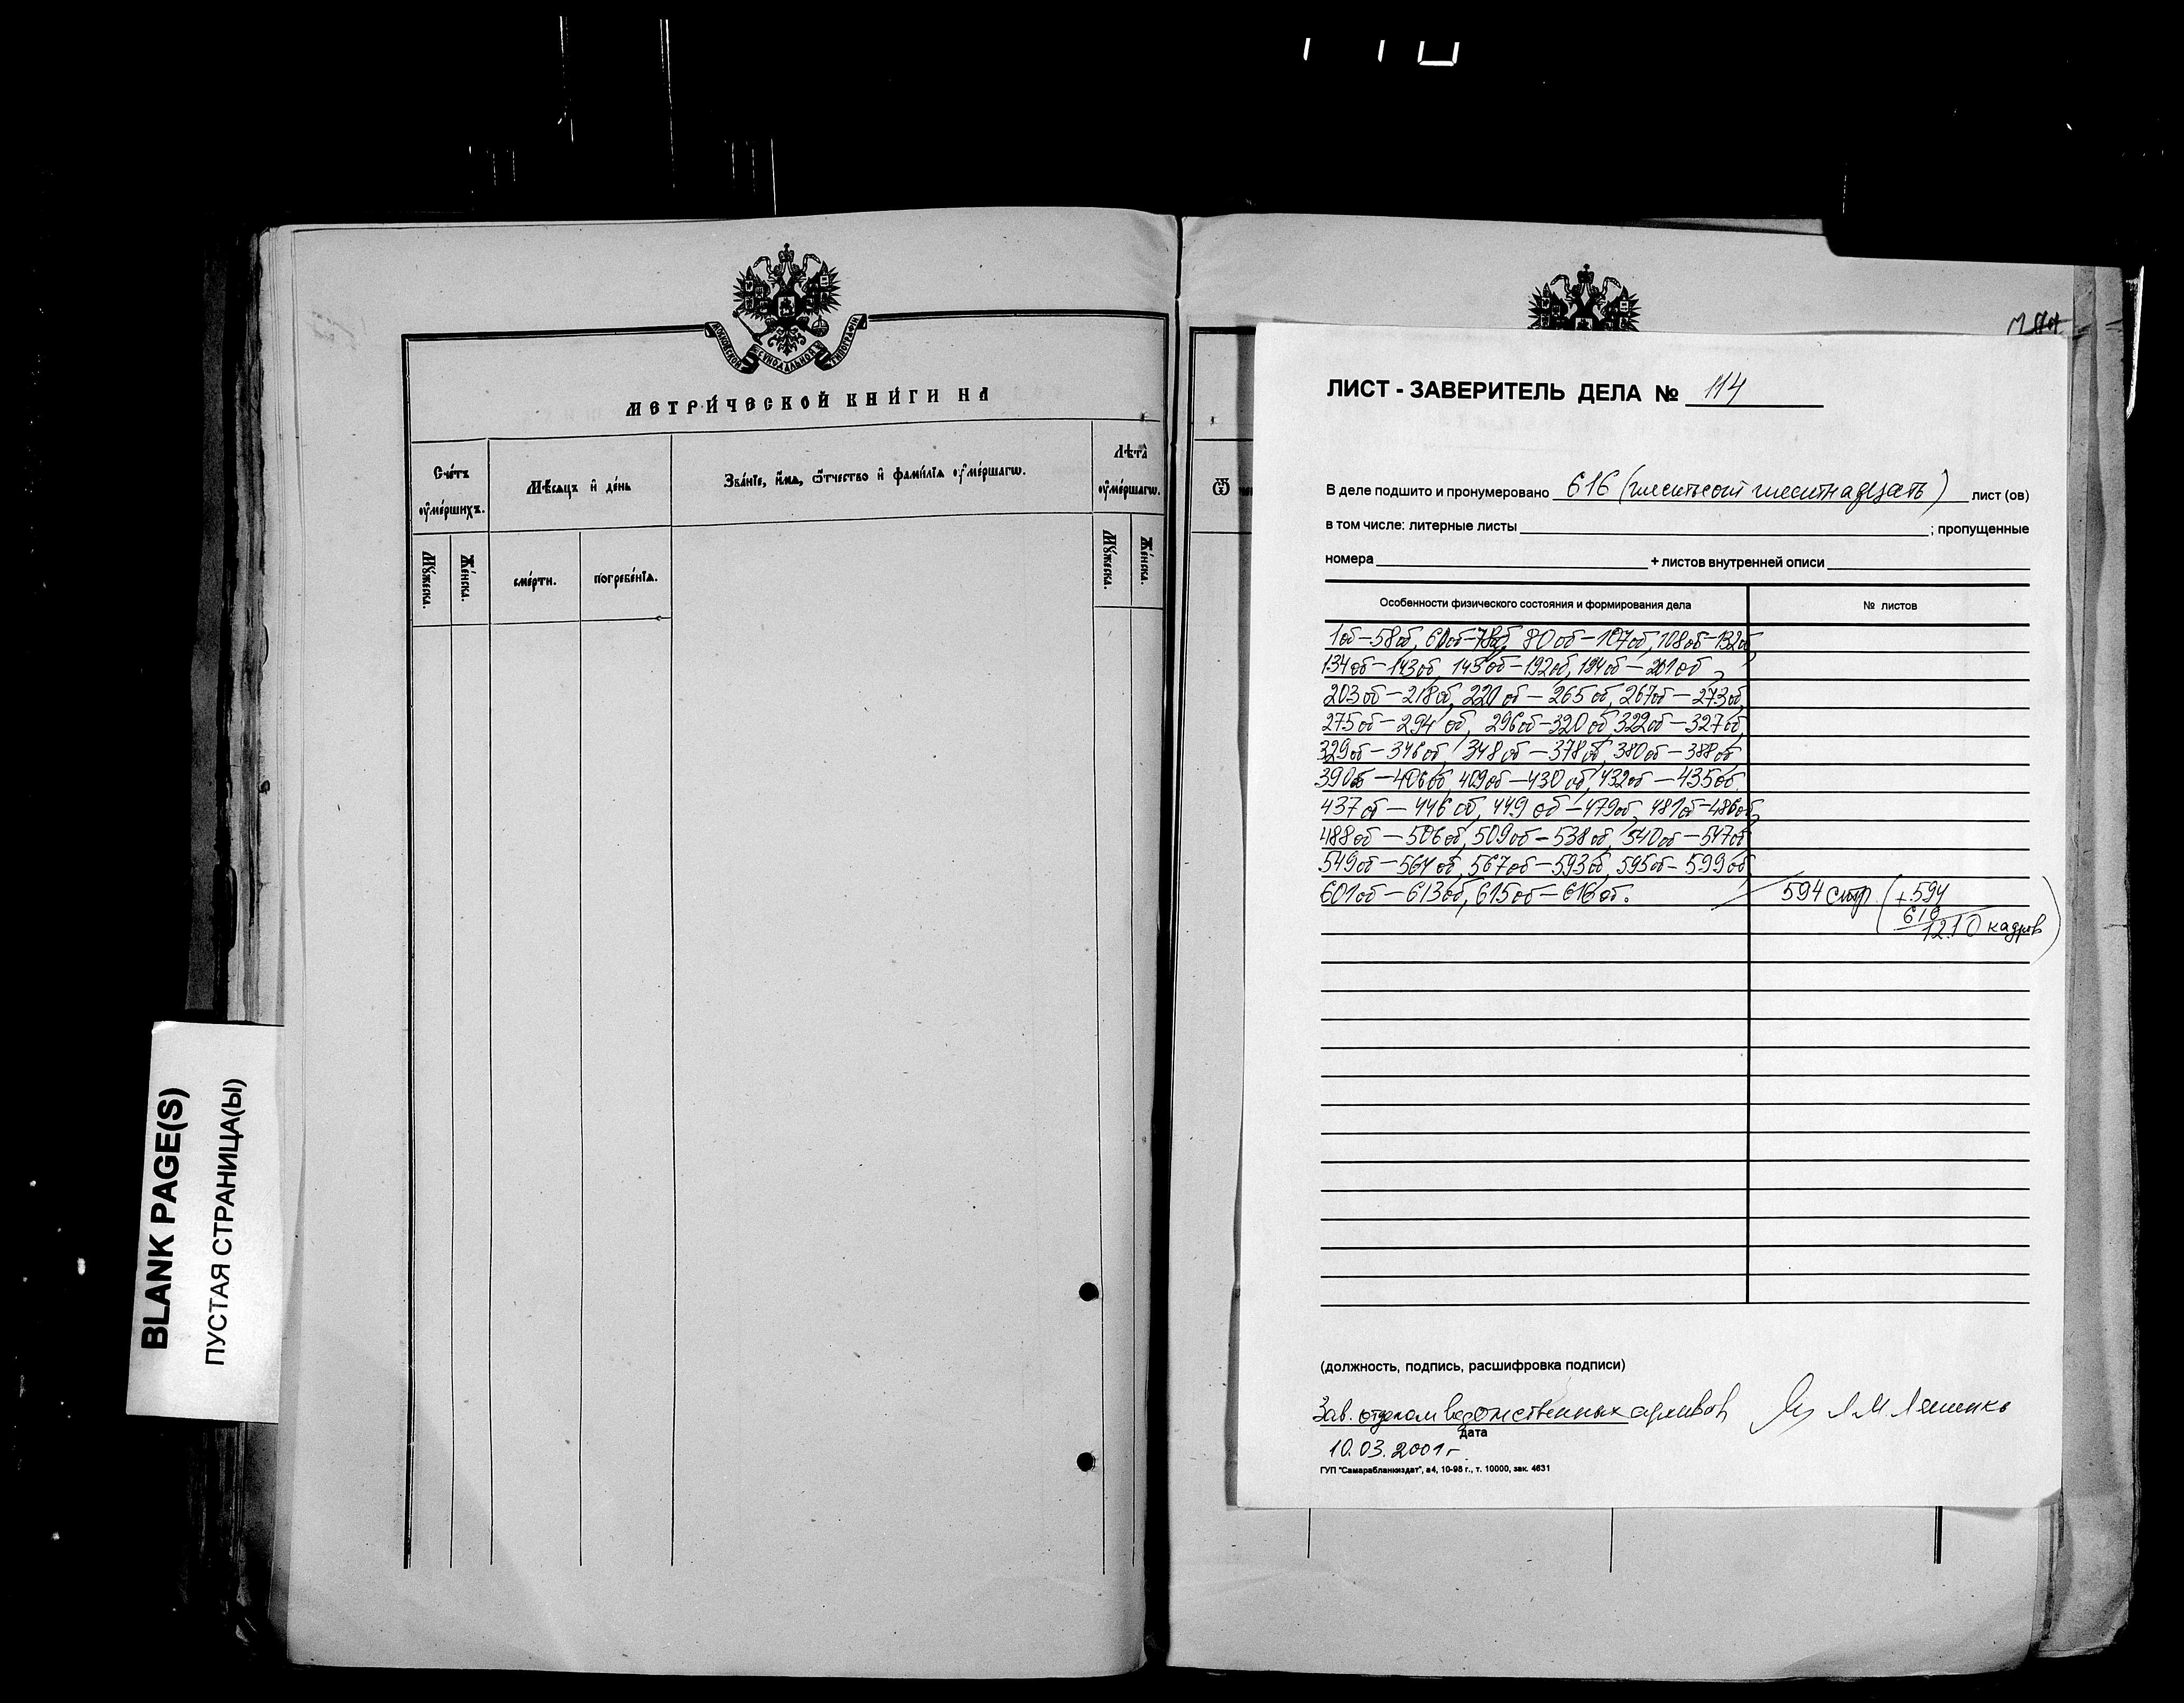 МОСКОВСКОЙ СѴНОДАЛЬНОЙ ТИПОГРАФІИ
МЕТРИ́ЧЕСКОЙ КНИ́ГИ НА
Сче́тъ ᲂу҆ме́ршихъ.
Мѣ́сяцъ и҆ де́нь
Зва́нїе, и҆́мѧ, ѿтчество и҆ фами́лїѧ ᲂу҆ме́ршагѡ.
Лѣ́та ᲂу҆ме́ршагѡ.
Мꙋ́жеска.
Же́нска.
сме́рти.
погребе́нїѧ.
Мꙋ́жеска.
Же́нска.
Ѿ
BLANK PAGE(S)
ПУСТАЯ СТРАНИЦА(Ы)
ЛИСТ - ЗАВЕРИТЕЛЬ ДЕЛА № 114
В деле подшито и пронумеровано 616 (шестьсот шестнадцать) лист (ов)
в том числе: литерные листы ; пропущенные
номера + листов внутренней описи
Особенности физического состояния и формирования дела
№ листов
1об – 58об, 60об – 78об, 80об – 107об, 108об – 132об
134об – 143об, 145об – 192об, 194об – 201об,
203об – 218об, 220об – 265об, 267об – 273об,
275об – 294об, 296об – 320об, 322об – 327об,
329об – 346об, 348об – 378об, 380об – 388об
390об – 406об, 409об – 430об, 432об – 435об.
437об – 446об, 449об – 479об, 481об – 486об,
488об – 506об, 509об – 538об, 540об – 547об
549об – 564об, 567об – 593об, 595об – 599об
601об – 613об, 615об – 616об.
594 стр. (+594
616
1210 кадров)
(должность, подпись, расшифровка подписи)
Зав. отделом ведомственных архивов Л.М. Ляшенко
дата
10.03.2001г
ГУП "Самарабланкиздат", а4, 10-98 г., т. 10000, зак. 4631